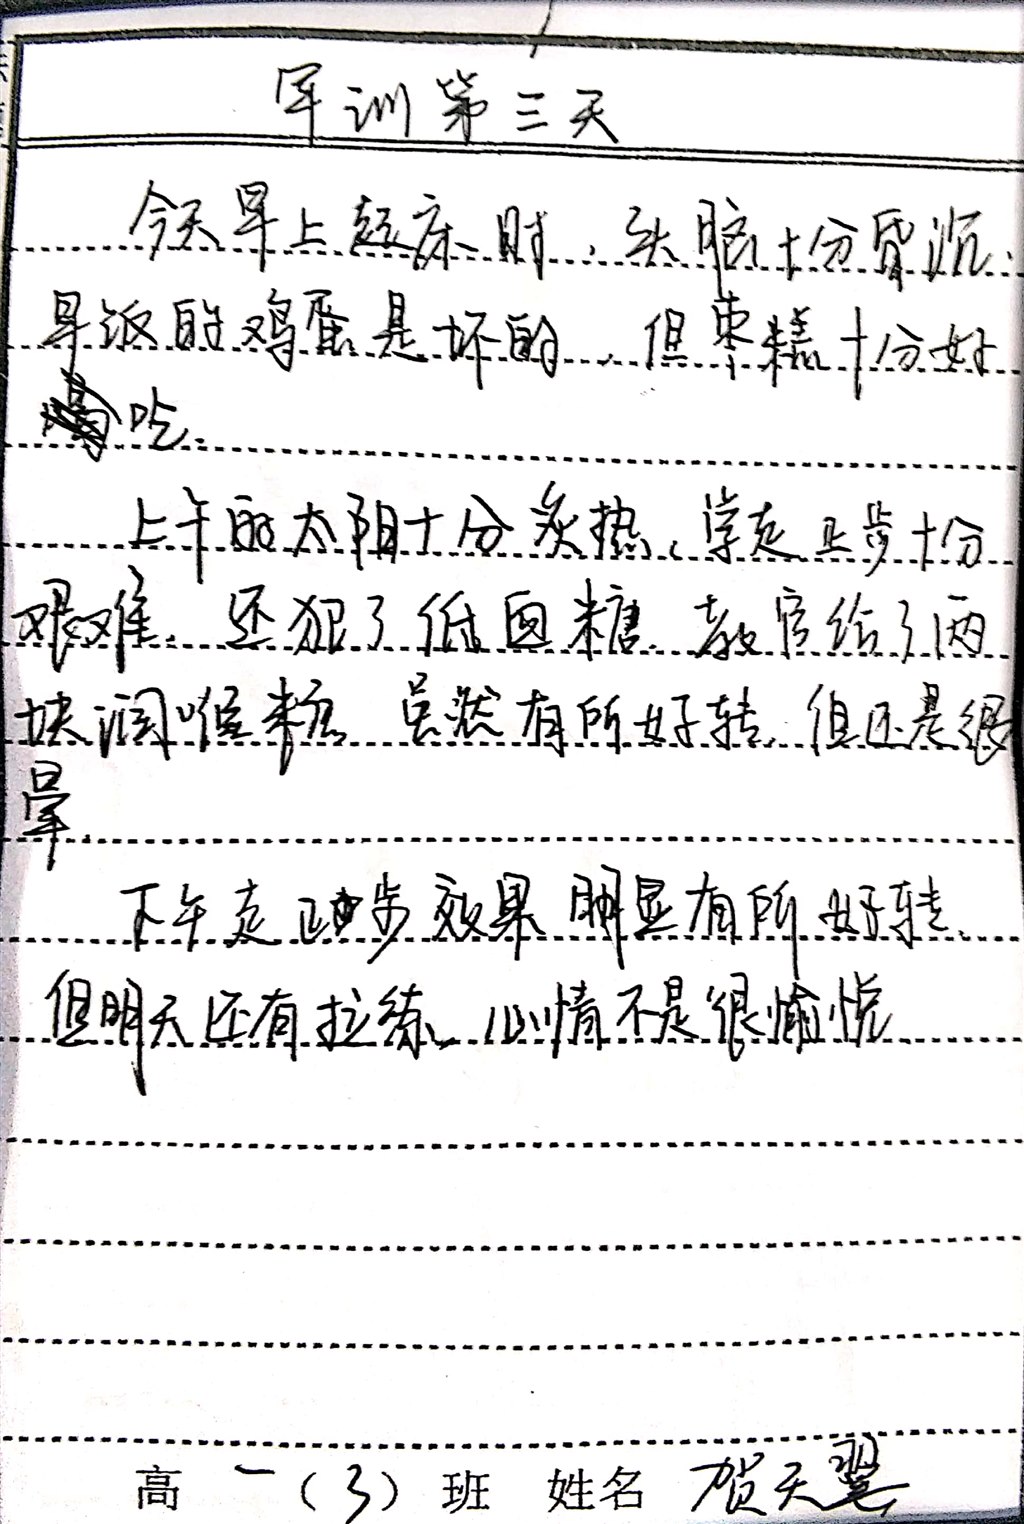 军训第三天
今天早上起床时,头脑十分昏沉.
早饭的鸡蛋是坏的,但枣糕十分好
吃.
上午的太阳十分炙热,学走正步十分
艰难.还犯了低血糖.教官给了两
块润喉糖 虽然有所好转,但还是很
晕.
下午走正步效果明显有所好转.
但明天还有拉练,心情不是很愉悦.
高一(3)班 姓名 贺天翼